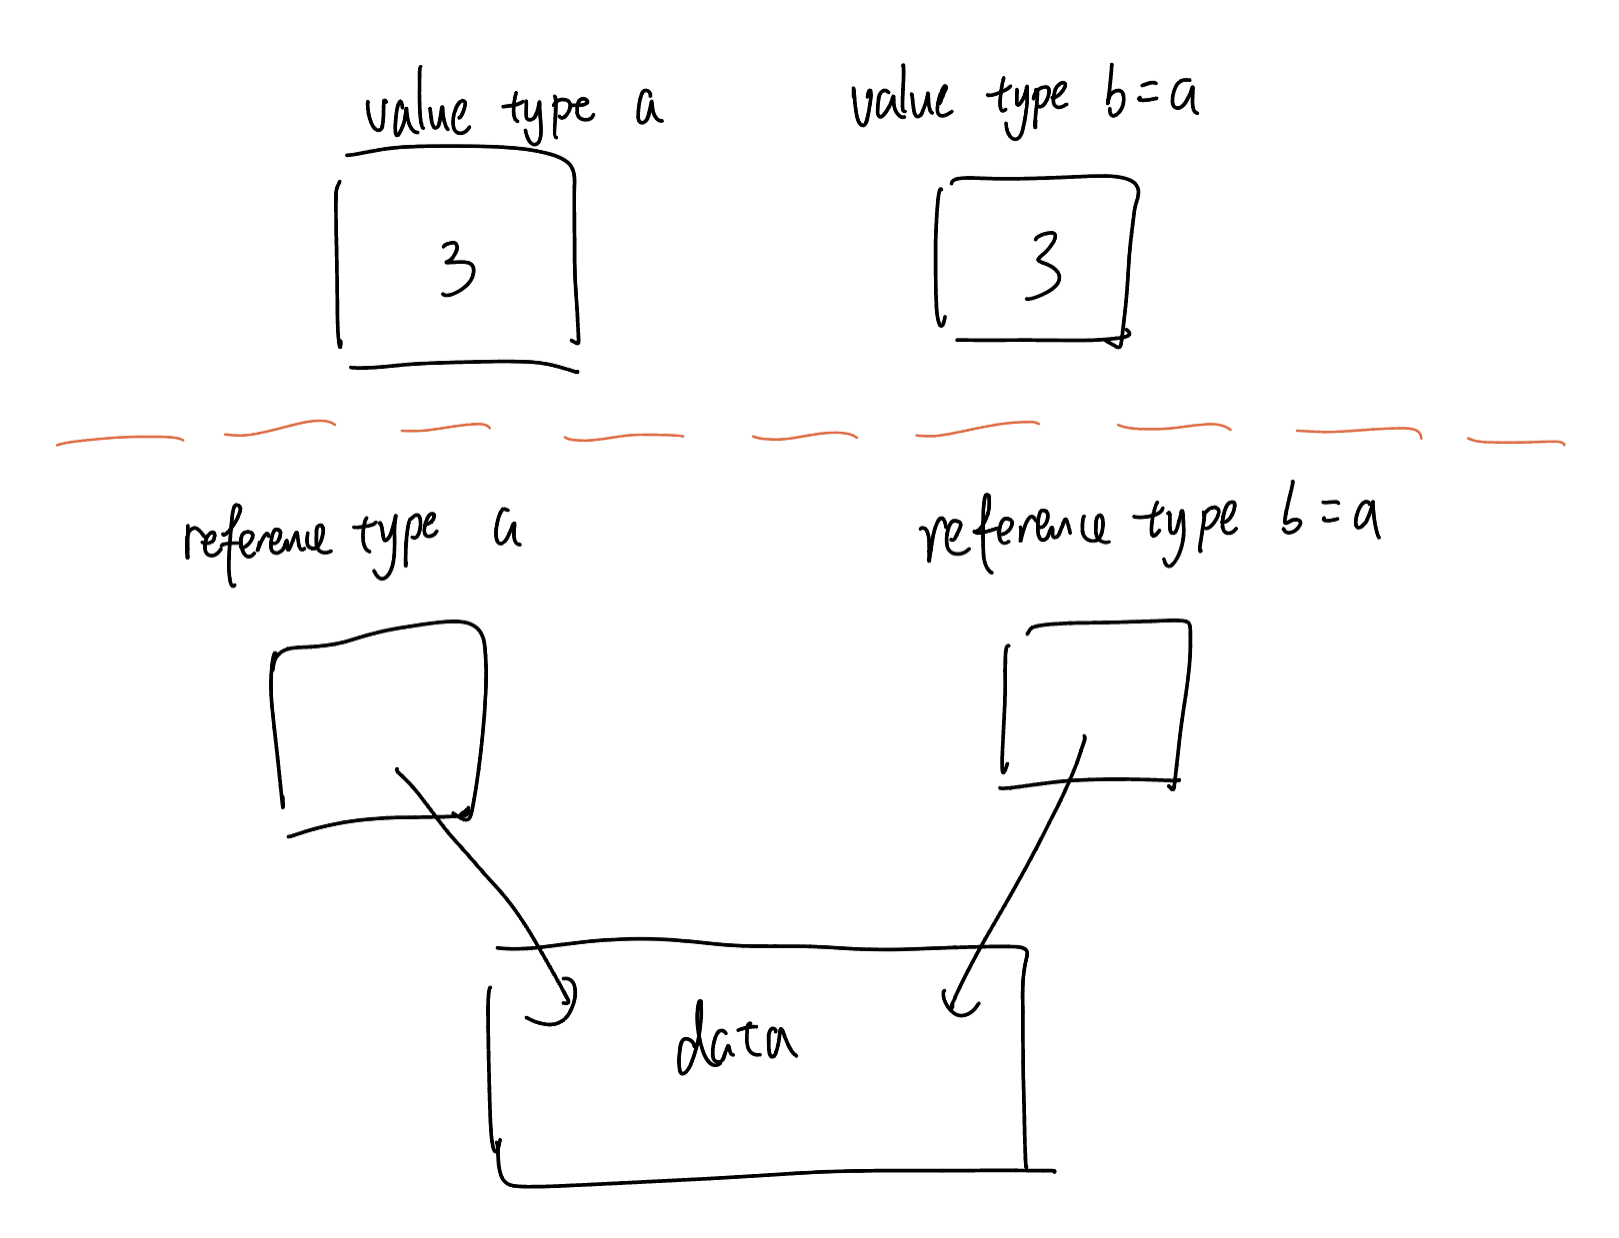 value type a
value type b=a
3
3
reference type a
reference type b=a
data